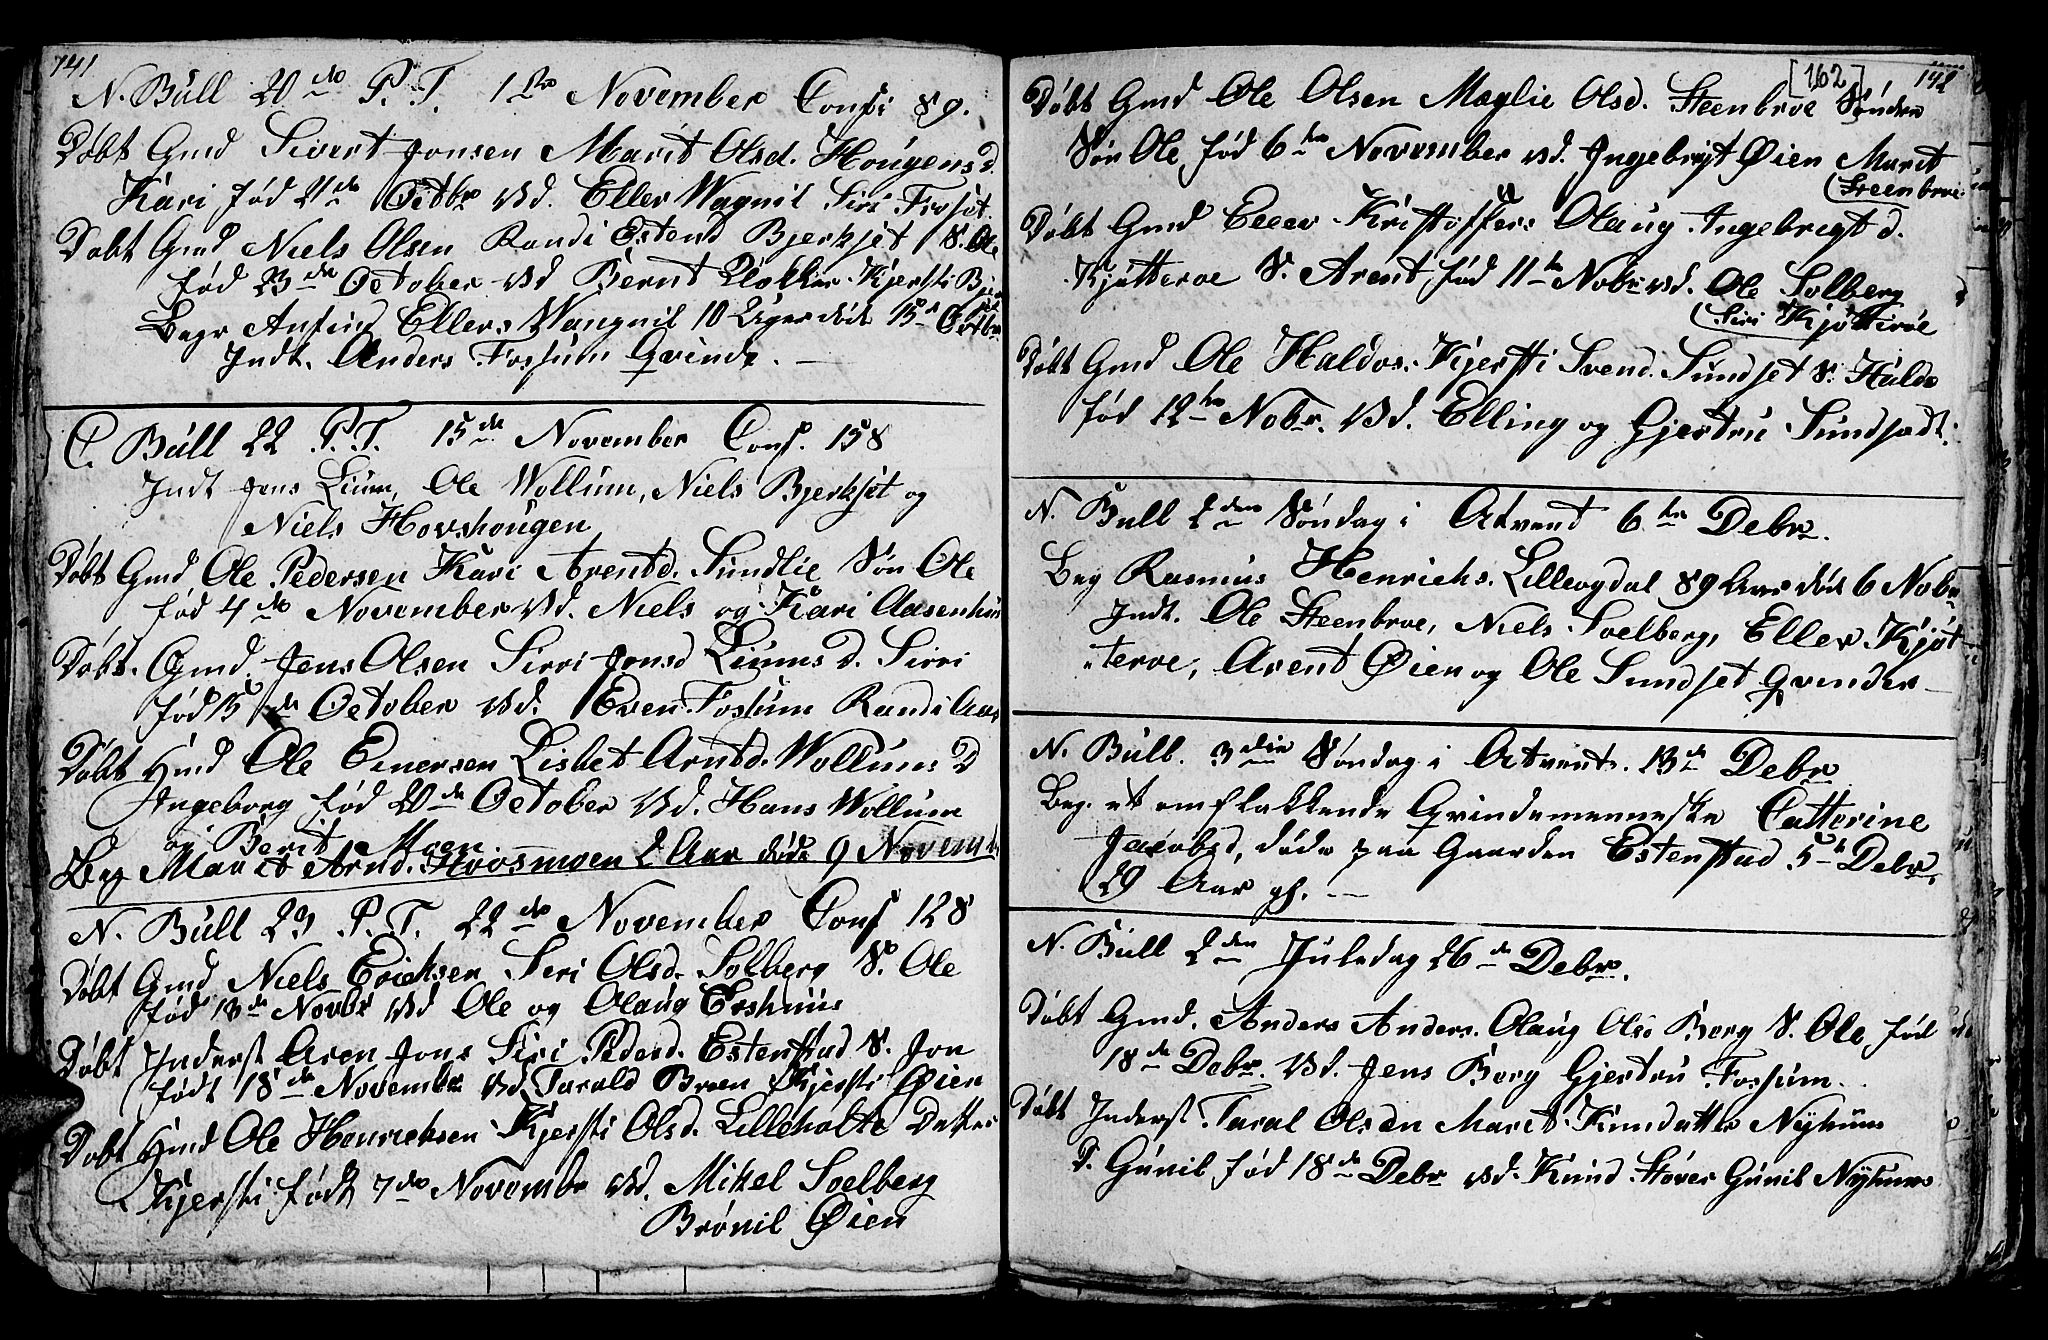 141
N. Bull 20de P. T. 1ste November Consi 89.
Døbt Gmd Sivert Jonsen Marit Olsd. Hougens d.
Kari fød 21de Octbr Vd. Eller Wagnil Siri Froset
Døbt Gmd Niels Olsen Randi Estend Bjerkset S. Ole
fød 23de October Vd Bernt Klokker Kjersti Bjerkset
Begr Anfind Ellers Wangnil 10 Uger døde 15de Octbr
Indt. Anders Fossum Qvinde. —
C. Bull 22 P. T. 15de November Cons. 158
Indt Jens Lium, Ole Wollum, Niels Bjerkset og
Niels Hovshougen
Døbt Gmd Ole Pedersen Kari Arentd. Sundlie Søn Ole
fød 4de November Vd. Niels og Kari Aasenhus
Døbt. Gmd. Jens Olsen Sirri Jonsd Liums d. Sirri
fød 15de October Vd. Even Fossum Randi Aas
Døbt Hmd Ole Enersen Lisbet Arntd. Wollums D
Ingeborg fød 20de October Vd. Hans Wollum
og Berit Moen
Beg Marit Arnd. Hoosmoen 2 Aar døde 9 Novemb
N. Bull 23 P. T. 22de November Cons 128
Døbt Gmd Niels Ericksen Seri Olsd. Solberg S. Ole
fød 13de Novbr Vd Ole og Olaug Eshuus
Døbt Inderst Aren Jons Siri Pedersd. Estenstad S. Jon
født 18de Novembr Vd Tarald Broen Kjersti Øien
Døbt Hmd Ole Henricksen Kjersti Olsd. Lilleholte Datter
Kjersti født 7de Novembr Vd. Mikel Solberg
Brønil Øien
[162] 142
Døbt Gmd Ole Olsen Maglie Olsd. Steenbroe Søndre
Søn Ole fød 6de November Vd. Ingebrigt Øien Marit
Steenbroe
Døbt Gmd Ellev Kristoffers Olaug Ingebrigt d.
Kjøtteroe S. Arent, fød 11te Nobr Vd. Ole Solberg
Siri Kjøtteroe
Døbt Gmd Ole Haldos. Kjersti Svend. Sundset S. Haldo
fød 12te Nobr. Vd. Elling og Gjertru Sundsædt.
N. Bull 2den Søndag i Atvent 6te Debr.
Beg Rasmus Henrichs. Lilleogdal 89 Aar død 6 Nobr
Indt. Ole Steenbroe, Niels Soelberg, Eller Kjøt
"teroe, Arent Øien og Ole Sundset Qvinder —
N. Bull. 3die Søndag i Atvent. 13de Debr
Beg. et omflakkende Qvindemenneske Catterine
Jacobsd, døde paa Gaarden Estenstad 5te Debr.
29 Aar gl. —
N. Bull 2den Juledag 26de Debr.
Døbt Gmd. Anders Anders. Olaug Olsd Berg S. Ole, fød
18de Debr. Vd. Jens Berg Gjertru Fossum.
Døbt Inderst Taral Olsen Marit Knudatter Nyhuus
D. Gunil fød 18de Debr Vd. Knud Støver Gunil Nyhuus